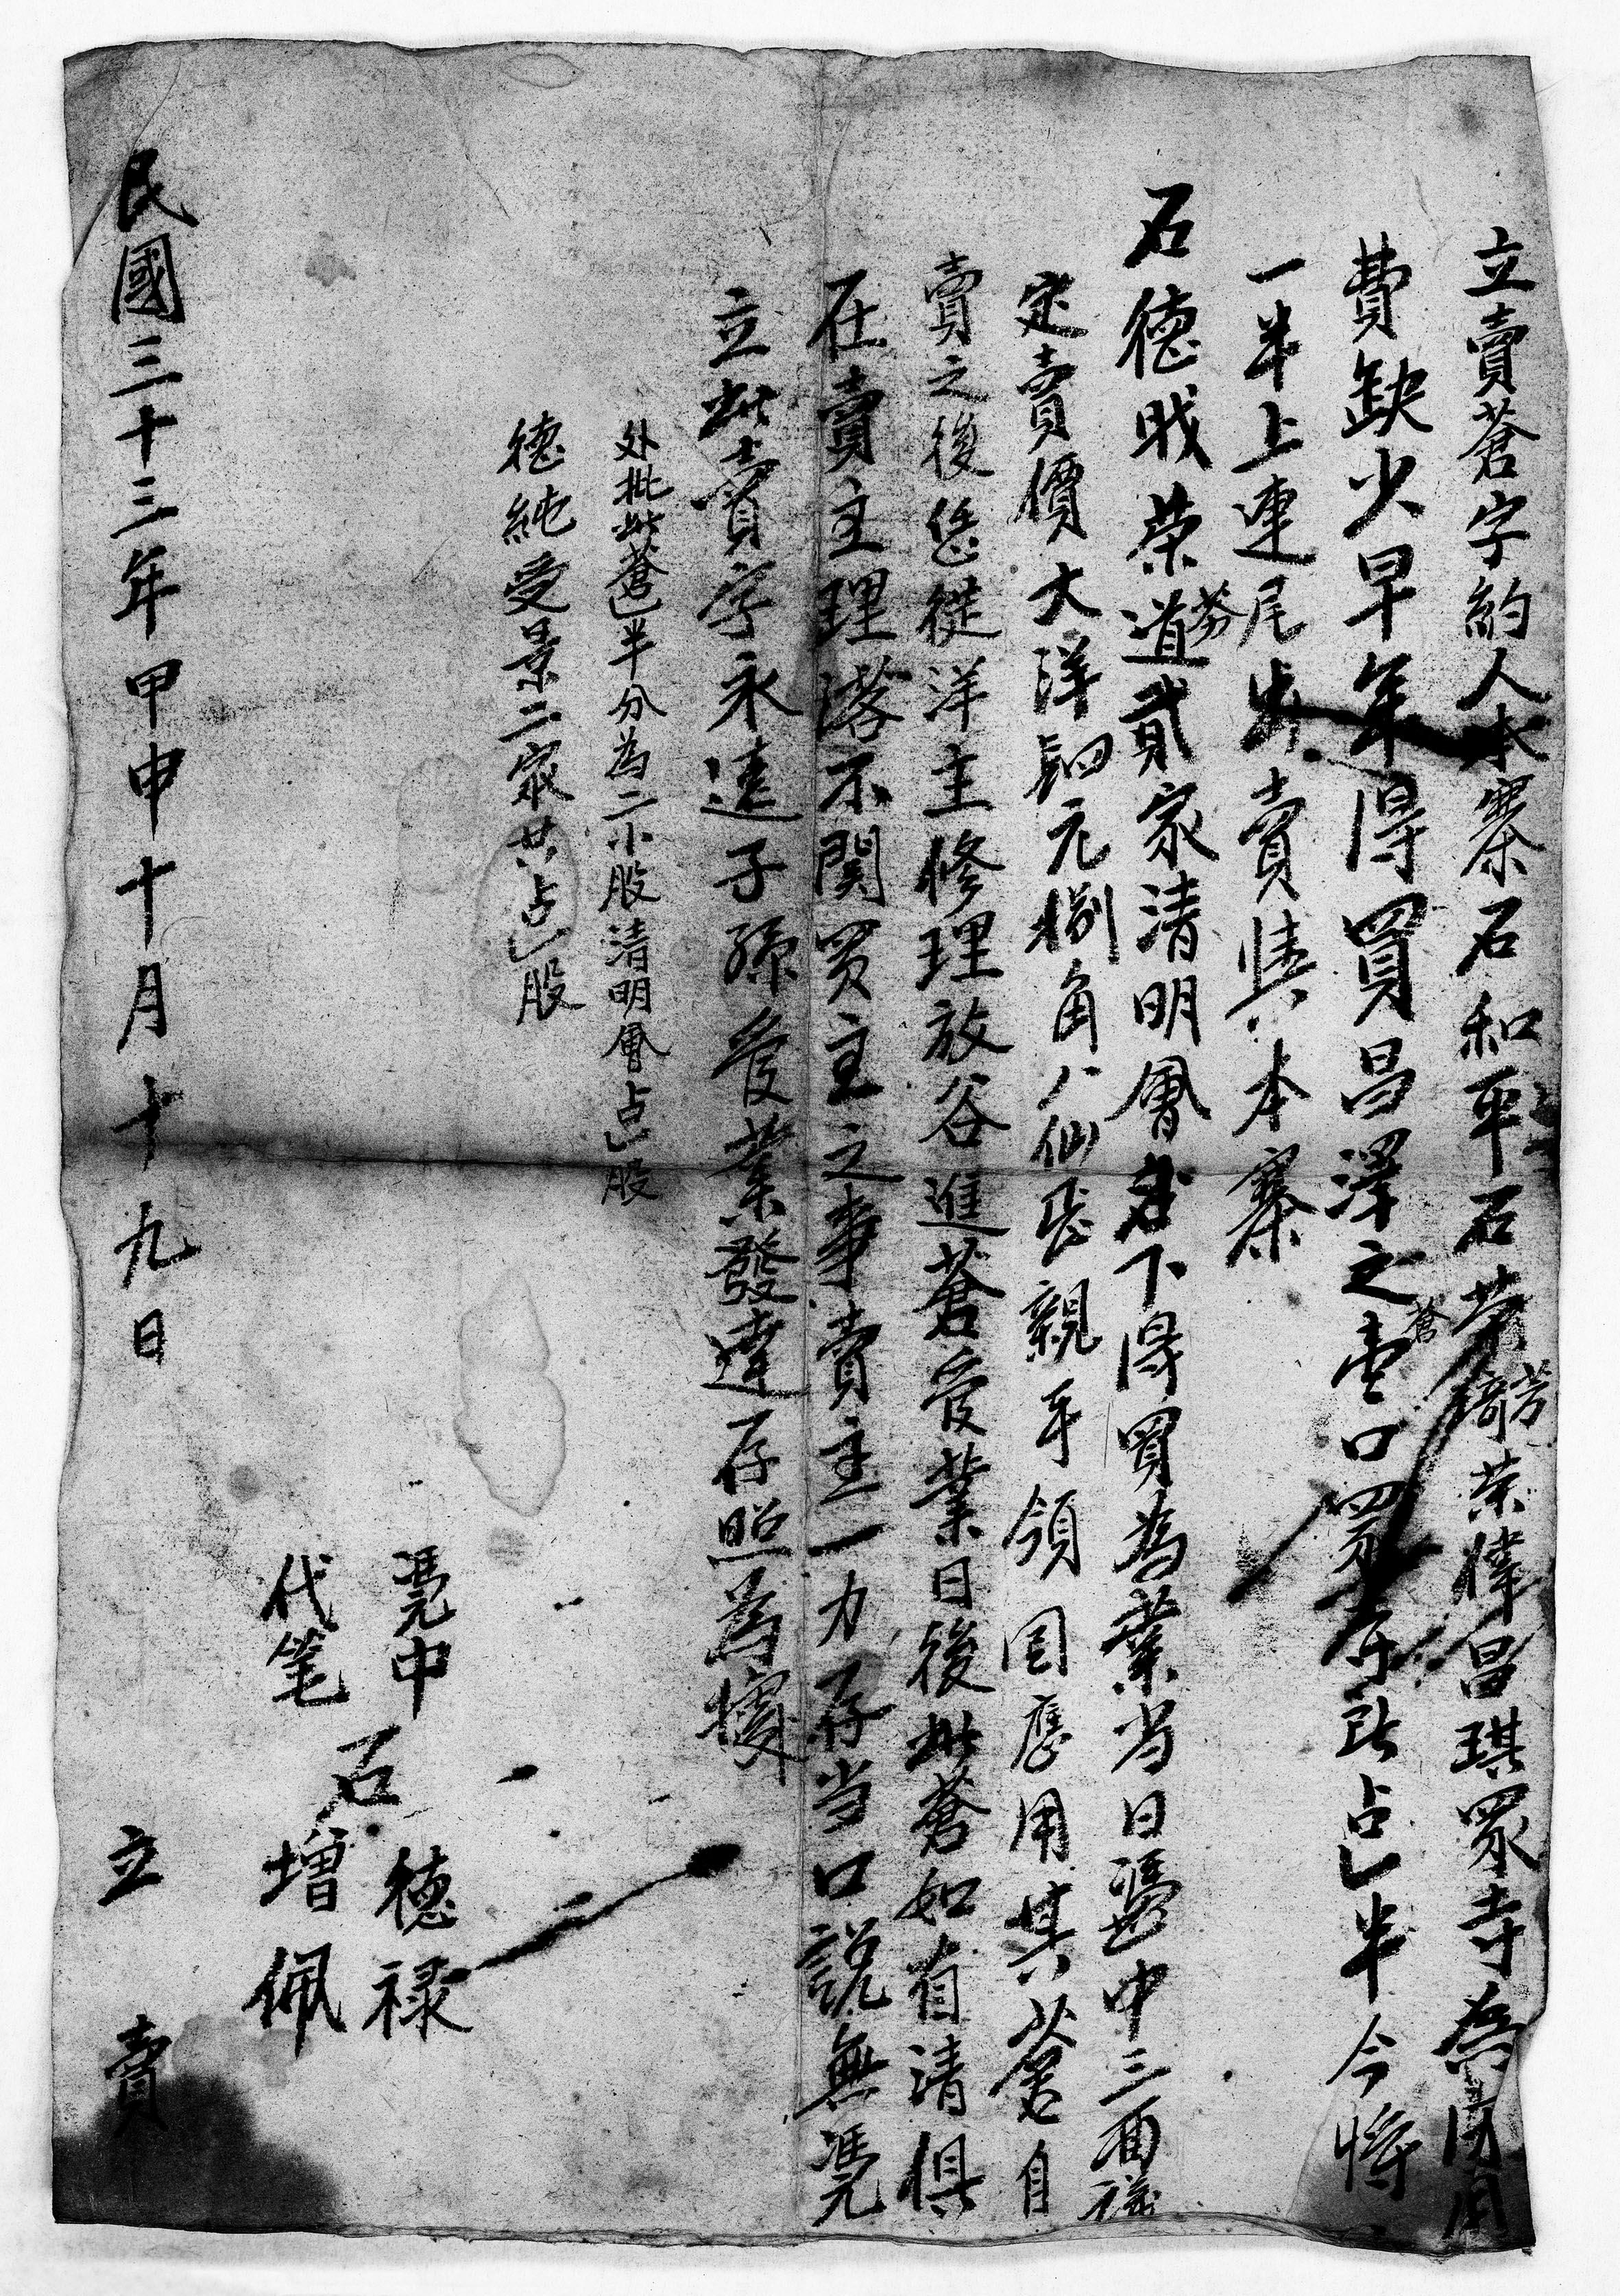 立賣蒼字約人本寨石和平石荣錡芳荣偉昌琪眾寺為因用
費缺少早年得買昌澤之蒼壹口眾寺所占一半今將
一半上連尾出賣與本寨
石德戝荣道芬貳家清明會名下得買為業当日憑中三面議
定賣價大洋元捌角八仙正親手領回應用其蒼自
賣之後恁從洋主修理放谷進蒼管業日後此蒼如有清俱
在賣主理落不関買主之事賣主一力存当口説無凴
立此賣字永遠子孫管業發達存照為據
外批此蒼一半分為二小股清明會占一股
德純受景二家共占一股
凴中 石德禄
代笔 增佩
民國三十三年甲申十月十九日 立 賣